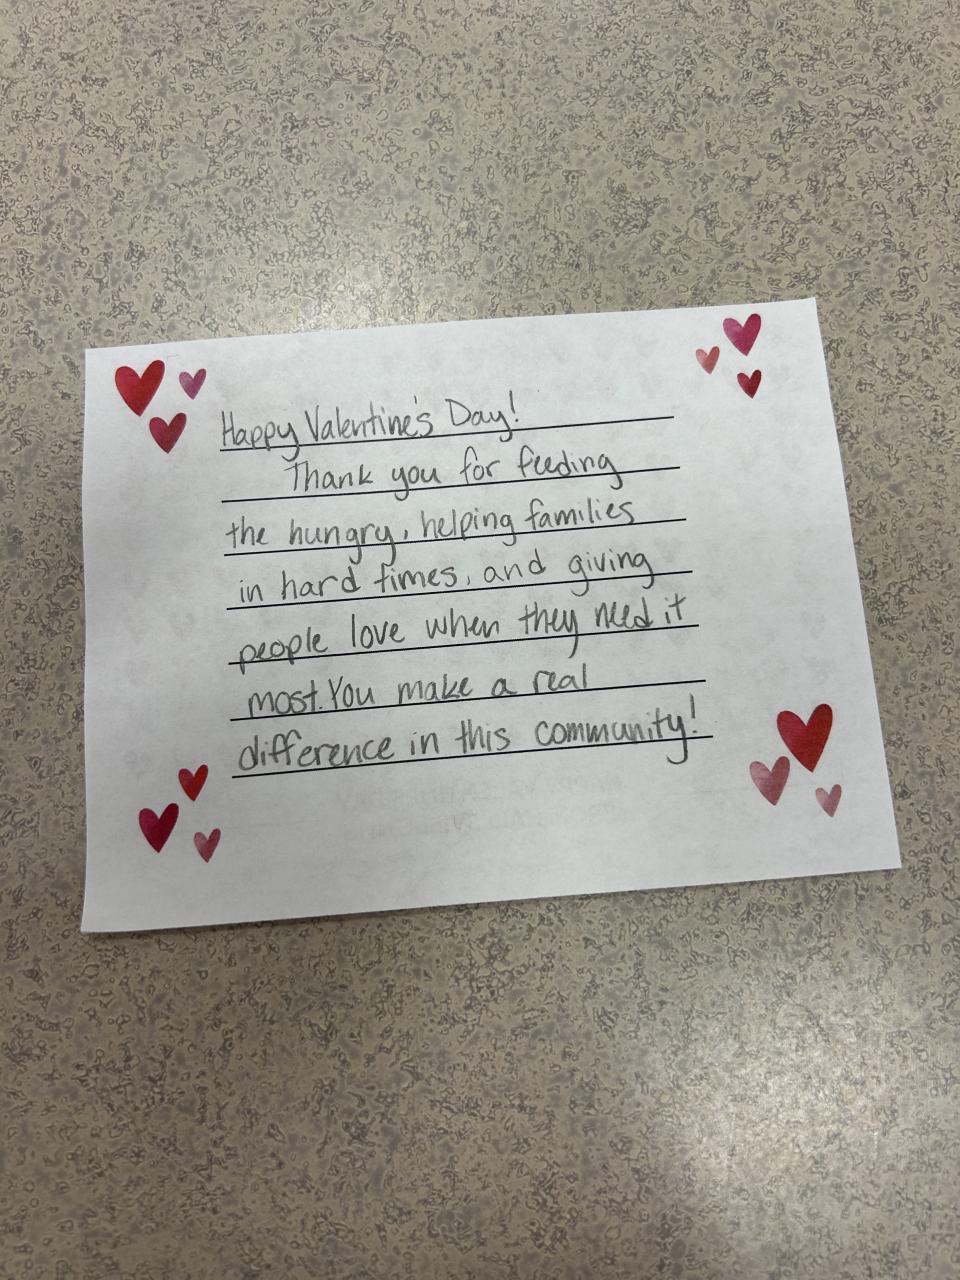 Happy Valentine's Day!
Thank you for feeding
the hungry, helping families
in hard times, and giving
people love when they need it
most. You make a real
difference in this community!